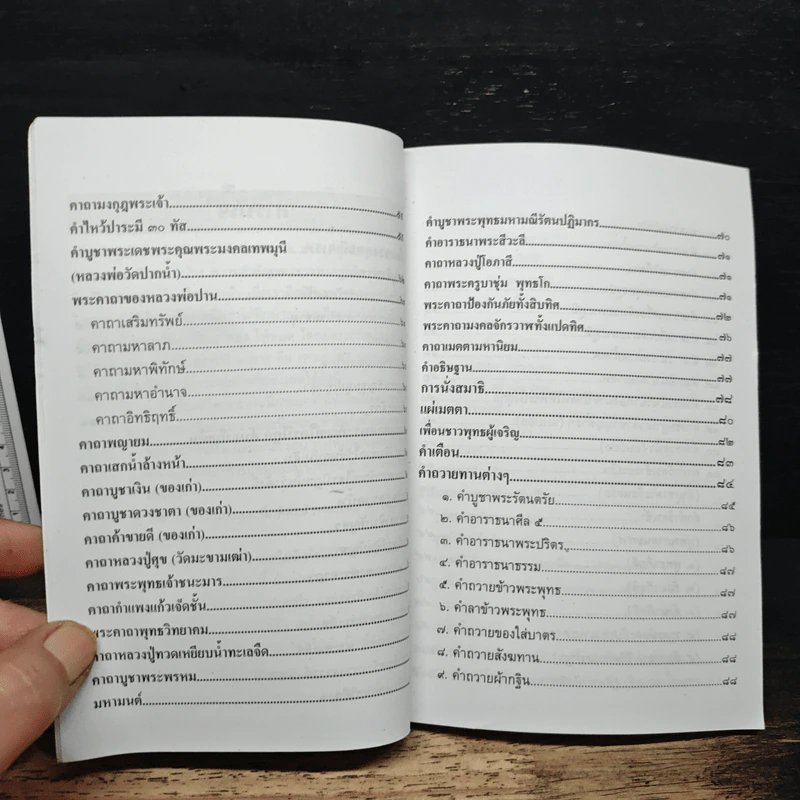 คาถามงกุฎพระเจ้า
คำไหว้ปาระมี ๓๐ ทัส
คำบูชาพระเดชพระคุณพระมงคลเทพมุนี
(หลวงพ่อวัดปากน้ำ)
พระคาถาของหลวงพ่อปาน
คาถาเสริมทรัพย์
คาถามหาลาภ
คาถามหาพิทักษ์
คาถามหาอำนาจ
คาถาอิทธิฤทธิ์
คาถาพญายม
คาถาเสกน้ำล้างหน้า
คาถาบูชาเงิน (ของเก่า)
คาถาบูชาดวงชาตา (ของเก่า)
คาถาค้าขายดี (ของเก่า)
คาถาหลวงปู่ศุข (วัดมะขามเฒ่า)
คาถาพระพุทธเจ้าชนะมาร
คาถากำแพงแก้วเจ็ดชั้น
พระคาถาพุทธวิทยาคม
คาถาหลวงปู่ทวดเหยียบน้ำทะเลจืด
คาถาบูชาพระพรหม
มหามนต์
คำบูชาพระพุทธมหามณีรัตนปฏิมากร ๗๐
คำอาราธนาพระสีวะลี ๗๑
คาถาหลวงปู่โอภาสี ๗๑
คาถาพระครูบาชุ่ม พุทธโก ๗๑
พระคาถาป้องกันภัยทั้งสิบทิศ ๗๒
พระคาถามงคลจักรวาฬทั้งแปดทิศ ๗๖
คาถาเมตตามหานิยม ๗๗
คำอธิษฐาน ๗๗
การนั่งสมาธิ ๗๘
แผ่เมตตา ๘๐
เพื่อนชาวพุทธผู้เจริญ ๘๒
คำเตือน ๘๓
คำถวายทานต่างๆ ๘๔
๑. คำบูชาพระรัตนตรัย ๘๕
๒. คำอาราธนาศีล ๕ ๘๖
๓. คำอาราธนาพระปริตร ๘๖
๔. คำอาราธนาธรรม ๘๗
๕. คำถวายข้าวพระพุทธ ๘๗
๖. คำลาข้าวพระพุทธ ๘๗
๗. คำถวายของใส่บาตร ๘๘
๘. คำถวายสังฆทาน ๘๘
๙. คำถวายผ้ากฐิน ๘๘